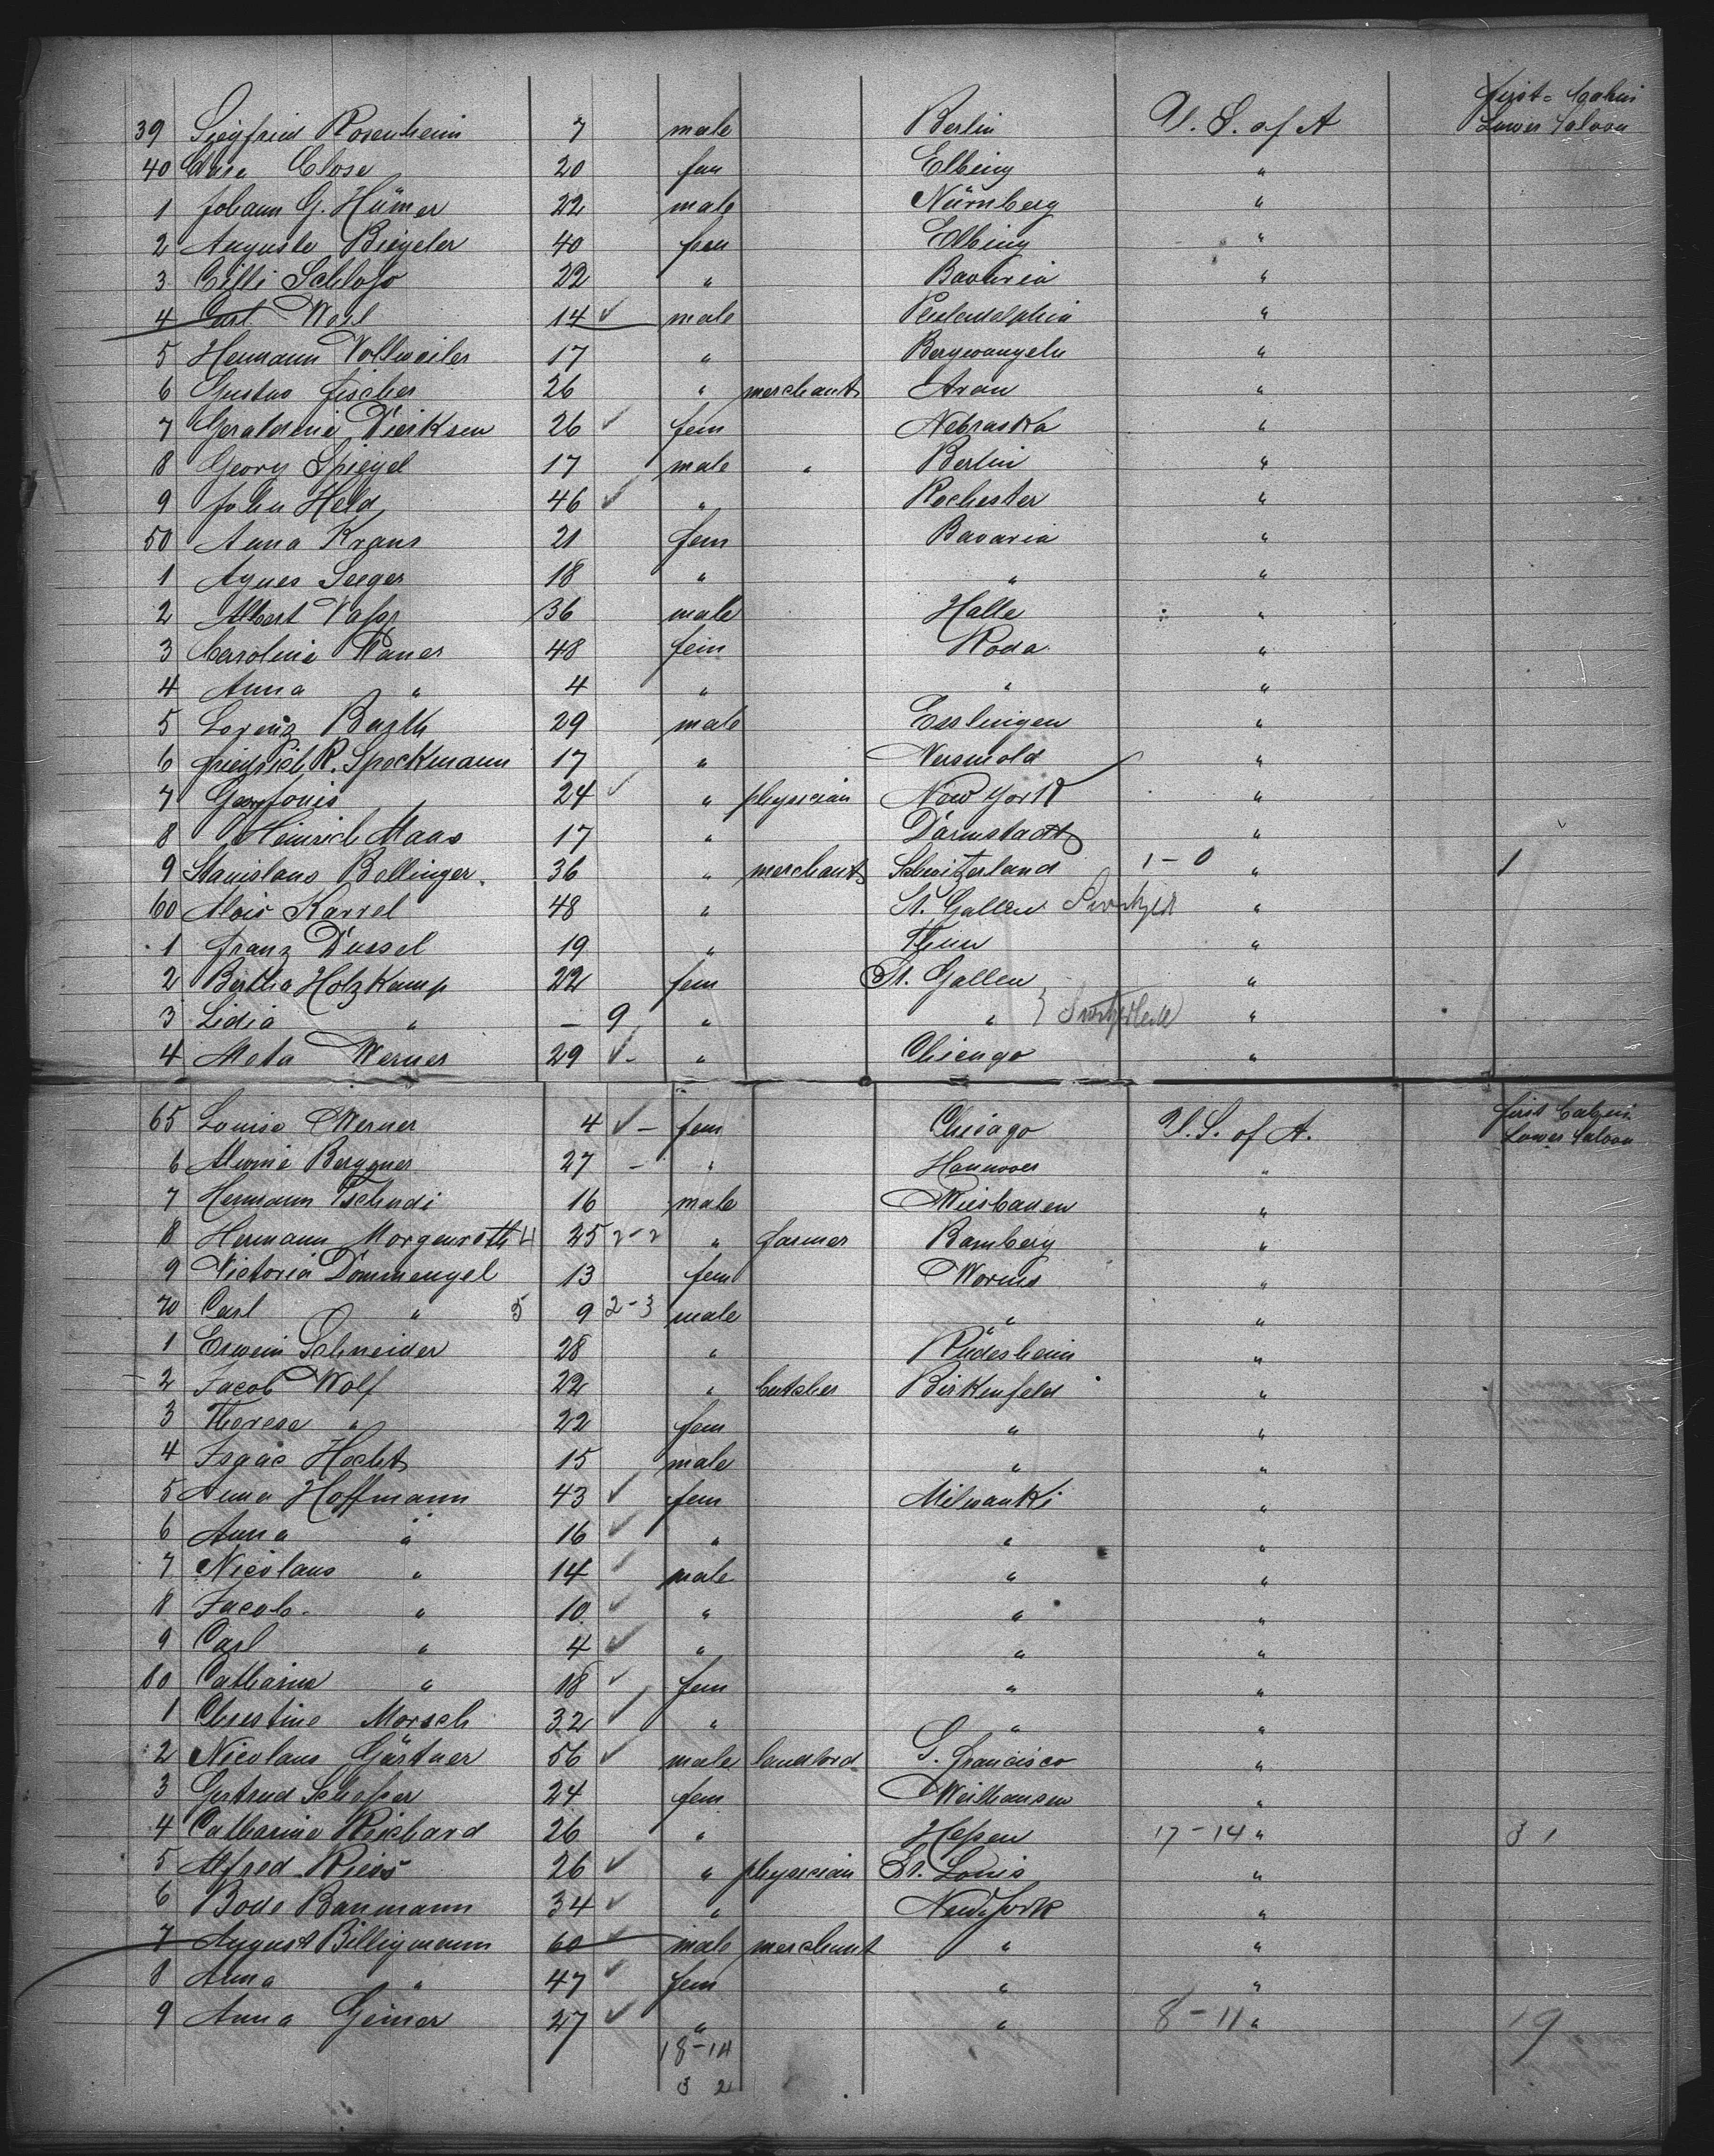 first - Cabin
39 Siegfried Rosenheim 7 male Berlin U. S. of A Lower Saloon
40 Close 20 fem Elbing "
1 Johann G. Hümer 22 male Nürnberg "
2 Auguste Biegeler 40 fem Elbing "
3 Cilli Schloß 22 " Bavaria "
4 Carl Weil 14 ✓ male Philadelphia "
5 Hermann Vollweiler 17 " "
6 Gustav Fischer 26 " merchant "
7 Geraldine Dierksen 26 ✓ fem Nebraska "
8 Georg Spiegel 17 male " Berlin "
9 John Held 46 ✓ " Rochester "
50 Anna Kraus 21 fem Bavaria "
1 Agnes Seeger 18 " " "
2 Albert 36 male Halle "
3 Caroline 48 fem Roda "
4 Anna " 4 " " "
5 Lorenz Barth 29 male Esslingen "
6 R. Speckmann 17 " Versmold "
7 24 ✓ " physician New York "
8 Heinrich Maas 17 " Darmstadt "
9 Stanislaus Bollinger. 36 " merchant Schwitzerland 1-0 " 1
60 Alois Karrel 48 " St. Gallen "
1 Franz Dussel 19 " Thun "
2 Bertha Holzkamp 22 fem St. Gallen "
3 Lidia " - 9 " " "
4 Meta Werner 29 ✓- " Chicago "
first Cabin
65 Louise Werner 4 ✓- fem Chicago U. S. of A. Lower Saloon
6 Alwine Berggner 27 - " Hannover "
7 Hermann Tschudi 16 male Wiesbaden "
8 Hermann Morgenroth 4 25 2-2 " farmer Bamberg "
9 Victoria Dommengel 13 fem Worms "
70 Carl " 5 9 2-3 male " "
1 Erwein Schneider 28 " Rüdesheim "
2 Jacob Wolf 22 " butcher Birkenfeld "
3 Therese " 22 fem " "
4 Isaac Hecht 15 male " "
5 Anna Hoffmann 43 ✓ fem Milwauki "
6 Anna " 16 ✓ " " "
7 Nicolaus " 14 ✓ male " "
8 Jacob " 10 ✓ " " "
9 Carl " 4 ✓ " " "
80 Catharine " 18 ✓ fem " "
1 Christine Morsch 32 ✓ " " "
2 Nicolaus Gärtner 56 ✓ male landlord S. Francisco "
3 Gertrud 24 fem "
4 Catharine Reichard 26 " Heßen 17-14 " 3 1
5 Alfred Riess 26 ✓ " physician St. Louis "
6 Bode Baumann 34 ✓ " New York "
7 August Billigmann 60 ✓ male merchant " "
8 Anna " 47 ✓ fem " "
9 Anna Geiner 27 ✓ " " 8-11 " 19
18-14
3 2